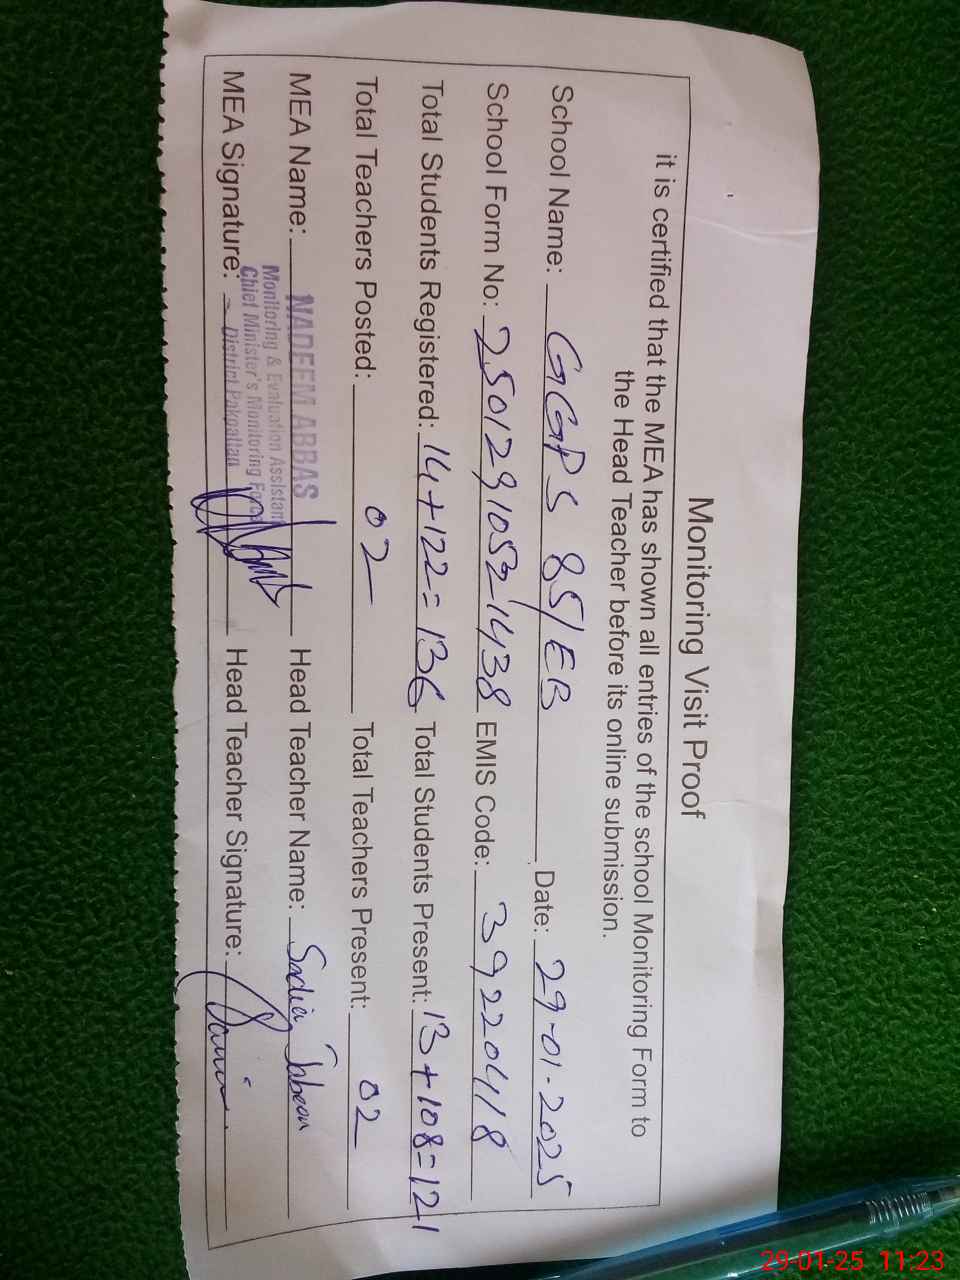 Monitoring Visit Proof
it is certified that the MEA has shown all entries of the school Monitoring Form to
the Head Teacher before its online submission.
School Name: GGPS 85/EB Date: 29-01-2025
School Form No: 250129105321438 EMIS Code: 39220418
Total Students Registered: 14+122=136 Total Students Present: 13+108=121
Total Teachers Posted: 02 Total Teachers Present: 02
MEA Name: NADEEM ABBAS Head Teacher Name: Sadia Jabeen
Monitoring & Evaluation Assistan
Chief Minister's Monitoring Force
MEA Signature: District Pakpattan Head Teacher Signature:
29-01-25 11:23